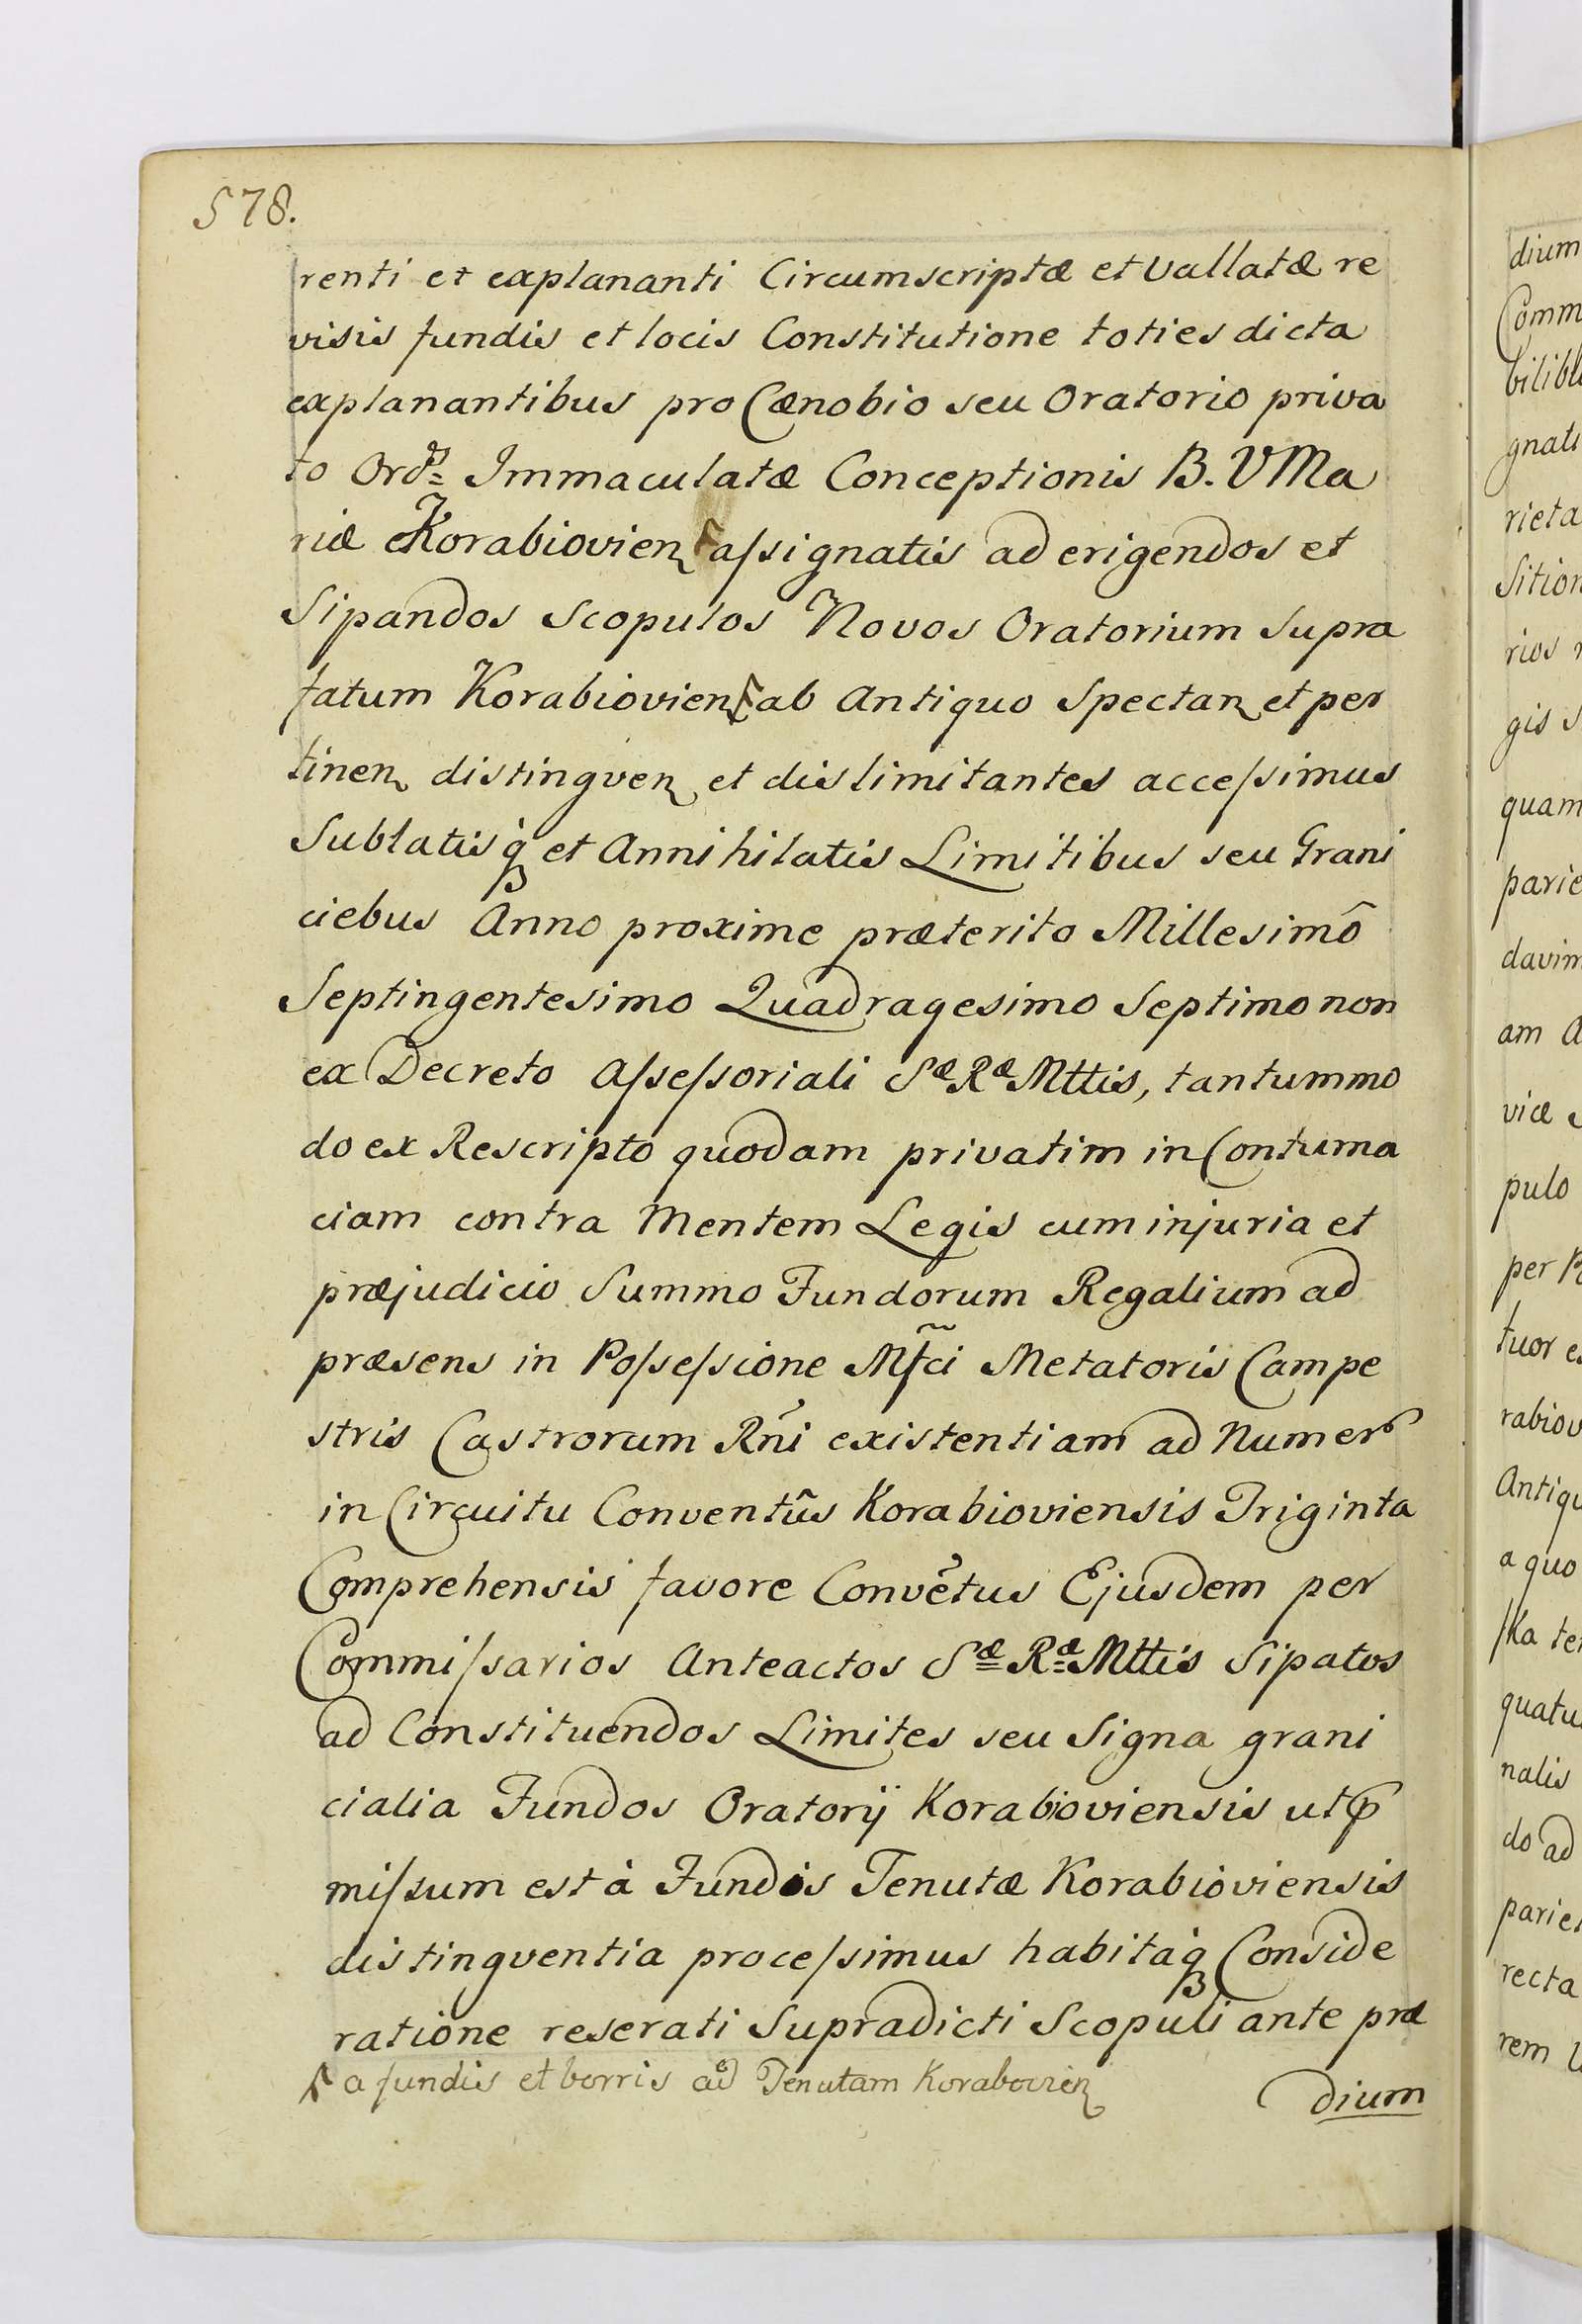 578.
renti et explananti Circumscriptæ et vallatæ re
visis fundis et locis Constitutione toties dicta
explanantibus pro Cænobio seu Oratorio priva
to Ordis Immaculatæ Conceptionis B. V Ma
riæ Korabiovien aſsignatis ad erigendos et
Sipandos Scopulos Novos Oratorium Supra
fatum Korabiovien ab Antiquo Spectan et per
tinen distingven et dislimitantes acceſsimus
Sublatisq et Annihilatis Limitibus seu Grani
ciebus Anno proxime præterito Millesimô
Septingentesimo Quadragesimo Septimo non
ex Decreto Aſseſsoriali Sæ Ræ Mttis, tantummo
do ex Rescripto quodam privatim in Contuma
ciam contra Mentem Legis cum injuria et
præjudicio Summo Fundorum Regalium ad
præsens in Poſseſsione Mfci Metatoris Campe
stris Castrorum Rñi existentiam ad Numerô
in Circuitu Conventûs Korabioviensis Triginta
Comprehensis favore Convẽtus Ejusdem per
Commiſsarios Anteactos Sæ Ræ Mttis Sipatos
ad Constituendos Limites seu Signa grani
cialia Fundos Oratorij Korabioviensis ut p
miſsum est à Fundis Tenutæ Korabioviensis
distingventia proceſsimus habitaq Conside
ratione reserati Supradicti Scopuli ante præ
a fundis et borris ad Tenutam Korabovien
dium
dium
Comm
bilibu
gnati
rieta
Sition
rios
gis
quam
parie
davim
am A
viæ
pulo
per
tuor
rabiov
Antiqu
a quo
ſka te
quatu
nalis
do ad
parie
recta
rem